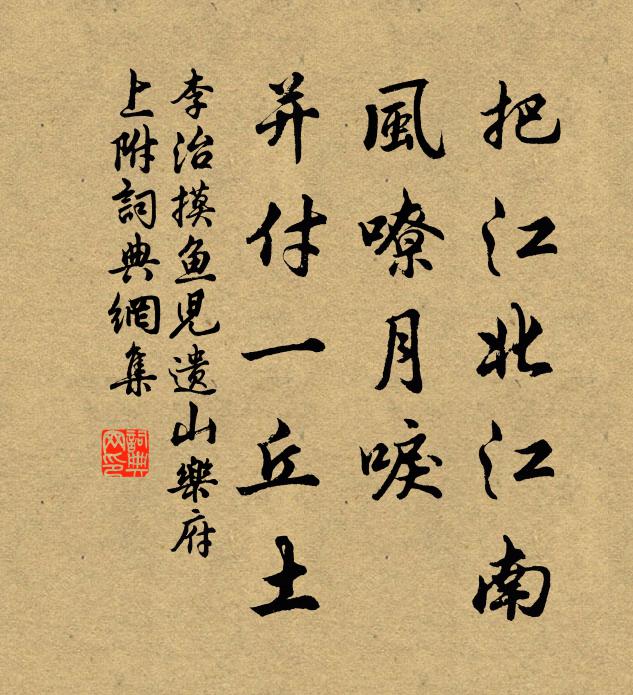 把江北江南
風嘹月唳
并付一丘土
李治摸鱼児遗山樂府
上附詞典網集
詞典
网印